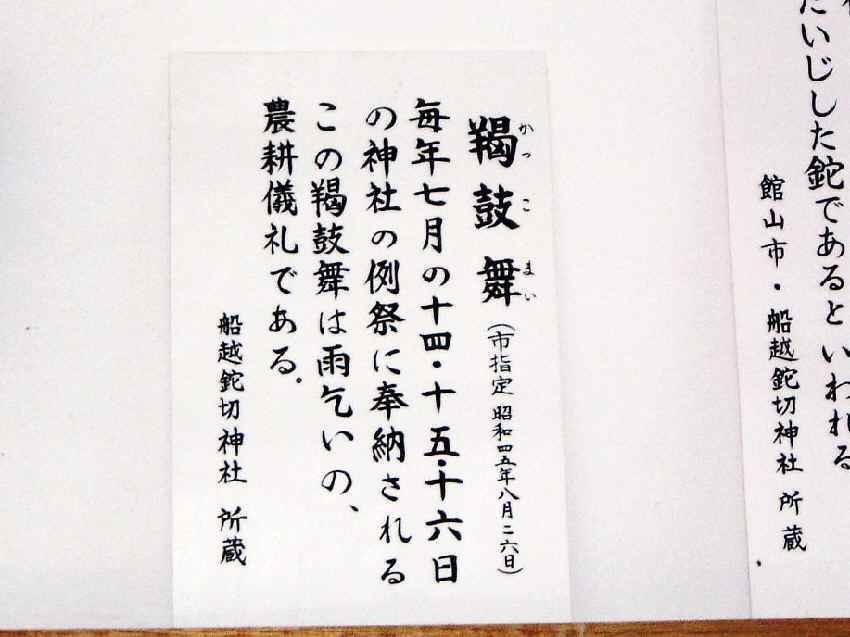 たいじした鉈であるといわれる
館山市・船越鉈切神社 所蔵
羯鼓舞(市指定 昭和四五年八月二六日)
かっこまい
毎年七月の十四・十五・十六日
の神社の例祭に奉納される
この羯鼓舞は雨乞いの、
農耕儀礼である.
船越鉈切神社 所蔵